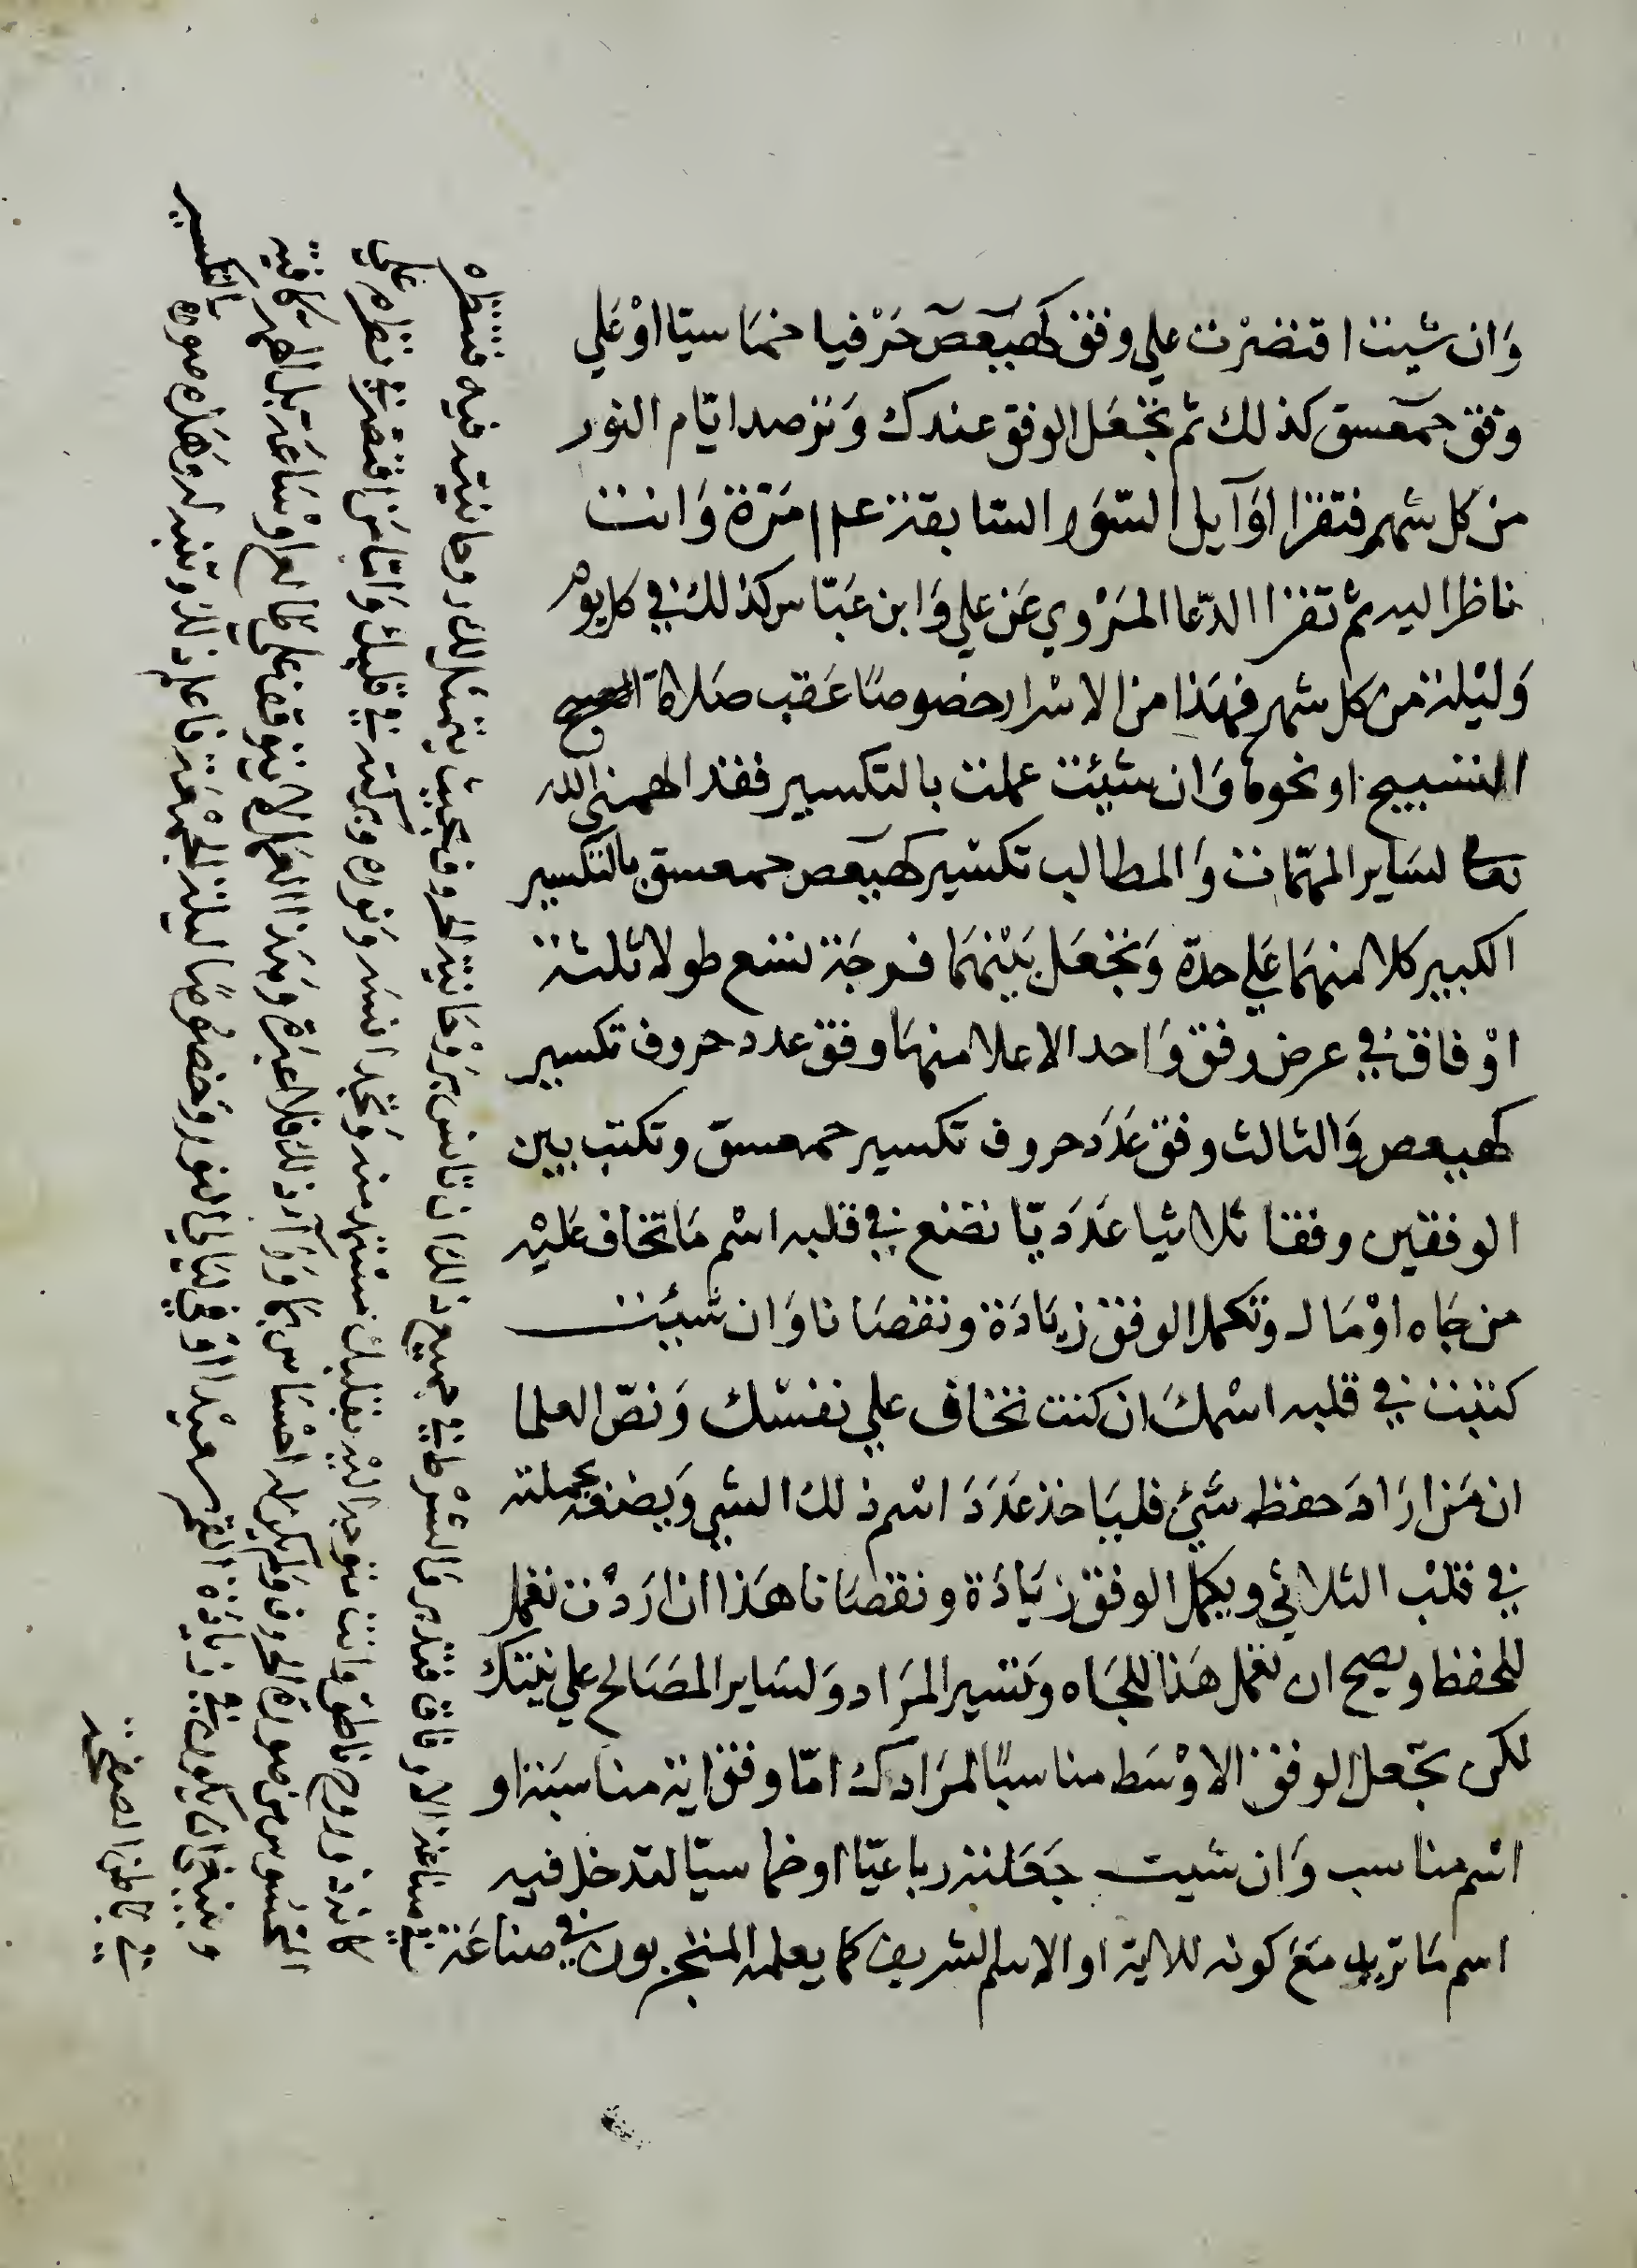 وَان شيت اقتصرْت علي وفق كهيعص حَرْفيا خماسيّا اوْ عَلي
وفق حمعسق كذلك ثم تجْعَل الوفق عندك وَترصد ايّام النور
من كل شهر فتقرا اوَايل السّوَر السّابقة عدد مَرّة وَانت
ناظر اليه ثم تقرا الدّعا المرْوي عَن علي وَابن عَبّاس كذلك في كل يوم
وَليْلة من كل شهر فهَذا من الاسْرار خصوصًا عَقب صَلاة الصبح
التسبيح او نحوها وَان شئت عملت بالتكسير فقد الهمني الله
تعالى لسَاير المهمّات وَالمطالب تكسير كهيعص حمعسق بالتكسير
الكبير كلا منهمَا عَلي حدة وَتجْعَل بَيْنهمَا فرجَة تسع طولا ثلثة
اوْفاق في عرض وفق وَاحد الاعلا منهَا وفق عدد حروف تكسير
كهيعص وَالثالث وفق عَدَد حروف تكسير حمعسق وتكتب بين
الوفقين وفقا ثلاثيا عَدَديّا تضع في قلبه اسْم مَا تخاف عَليْه
من جَاه اوْ مَال وتكمل الوفق زيَادَة ونقصَانا وَان شئت
كتبت في قلبه اسْمكَ ان كنت تخاف علي نفسْك وَنصّ العلما
ان مَن ارَادَ حفظ شئ فليَاخذ عَدَدَ اسْم ذلك الشي وَيضعه بجملته
في قلبْ الثلاثي ويكمل الوفق زيَادَة ونقصَانا هَذا ان ارَدْت تعمل
للحفظ ويصح ان تعمل هَذا للجَاه وَتيْسير المرَاد وَلسَاير المصَالح علي نيتك
لكن تجْعَل الوفق الاوْسَط مناسبًا لمرَادك امّا وفق اية مناسَبة او
اسْم مناسب وَان شيت جَعَلته رباعيّا اوخماسيّا لتدخل فيه
اسم مَا تريد مَعَ كونه للاية او الاسم الشريف كما يعلمه المنجربون في صناعَة
في صناعة الاوفاق فتدبر وَالشرْط في جميع ذلك ان تانس برُوْحانية الحروف بحيث يتمثل لك روحانيته فيه فتنظره
كانه ذو روح ناطق وانت متوجه اليْه بقلبك مسْتمد منه وَتجد انسَه وَنوره وبركته في قلبك وَامّا مَن اقتصر في نظره على
المحسُوس من صورة الحروف وَلم يكن له احْسَاس بمَا وَرَآء ذلك فلا عبرَة وَهَذا العمل لا يتوقف على طالع اوْ سَاعَة بل الهمة كافية
وَينبغي ان يكون في زيادَة القمر سعيْدا او في ليَالي النور وخصُوصًا ليلة الجمْعَة فاعلم ذلك وتنبه له وَهَذه صورة بالتكسير
في باطن الصفحة